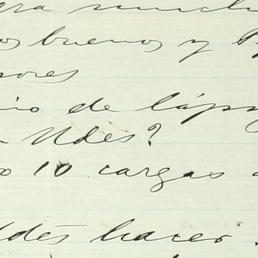 buenos y
ores
io de lápi
Udes?
o 10 cargas
Udes hacer